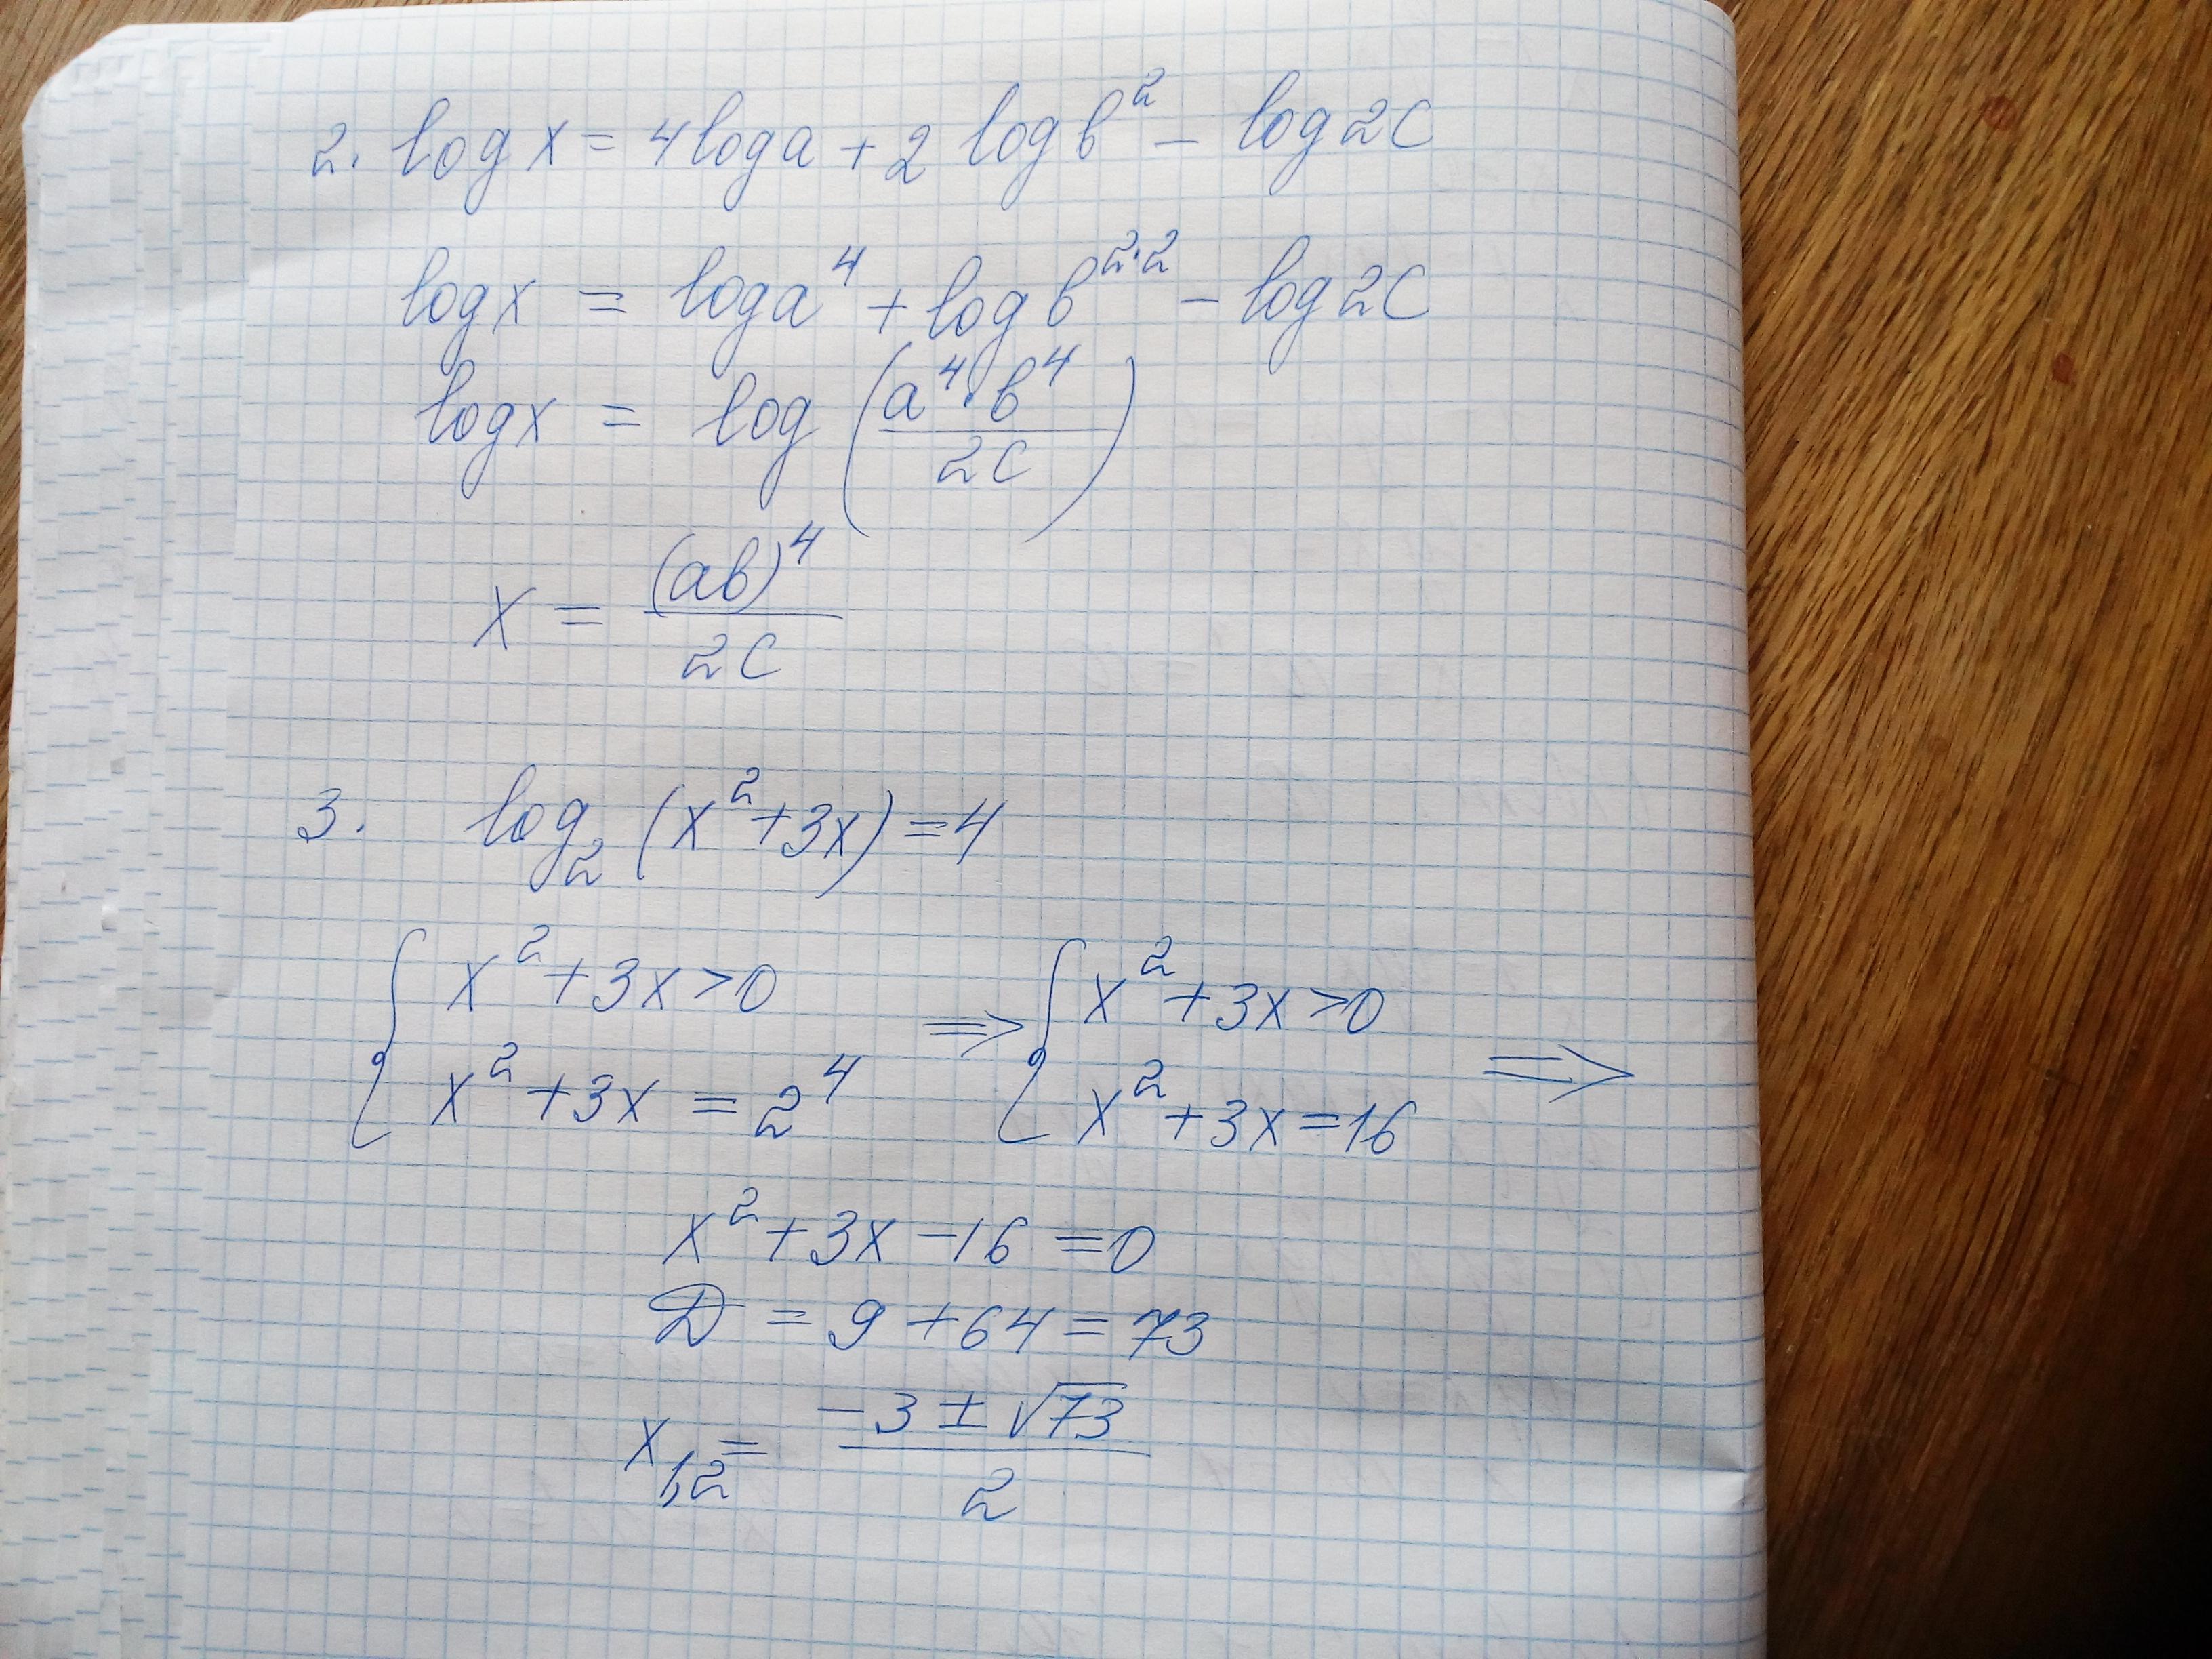 2. log x = 4 log a + 2 log b² − log 2c
log x = log a⁴ + log b²·² − log 2c
log x = log (a⁴·b⁴ / 2c)
x = (ab)⁴ / 2c
3. log₂ (x² + 3x) = 4
{ x² + 3x > 0 ⇒ { x² + 3x > 0 ⇒
x² + 3x = 2⁴ x² + 3x = 16
x² + 3x − 16 = 0
D = 9 + 64 = 73
x₁,₂ = (−3 ± √73) / 2